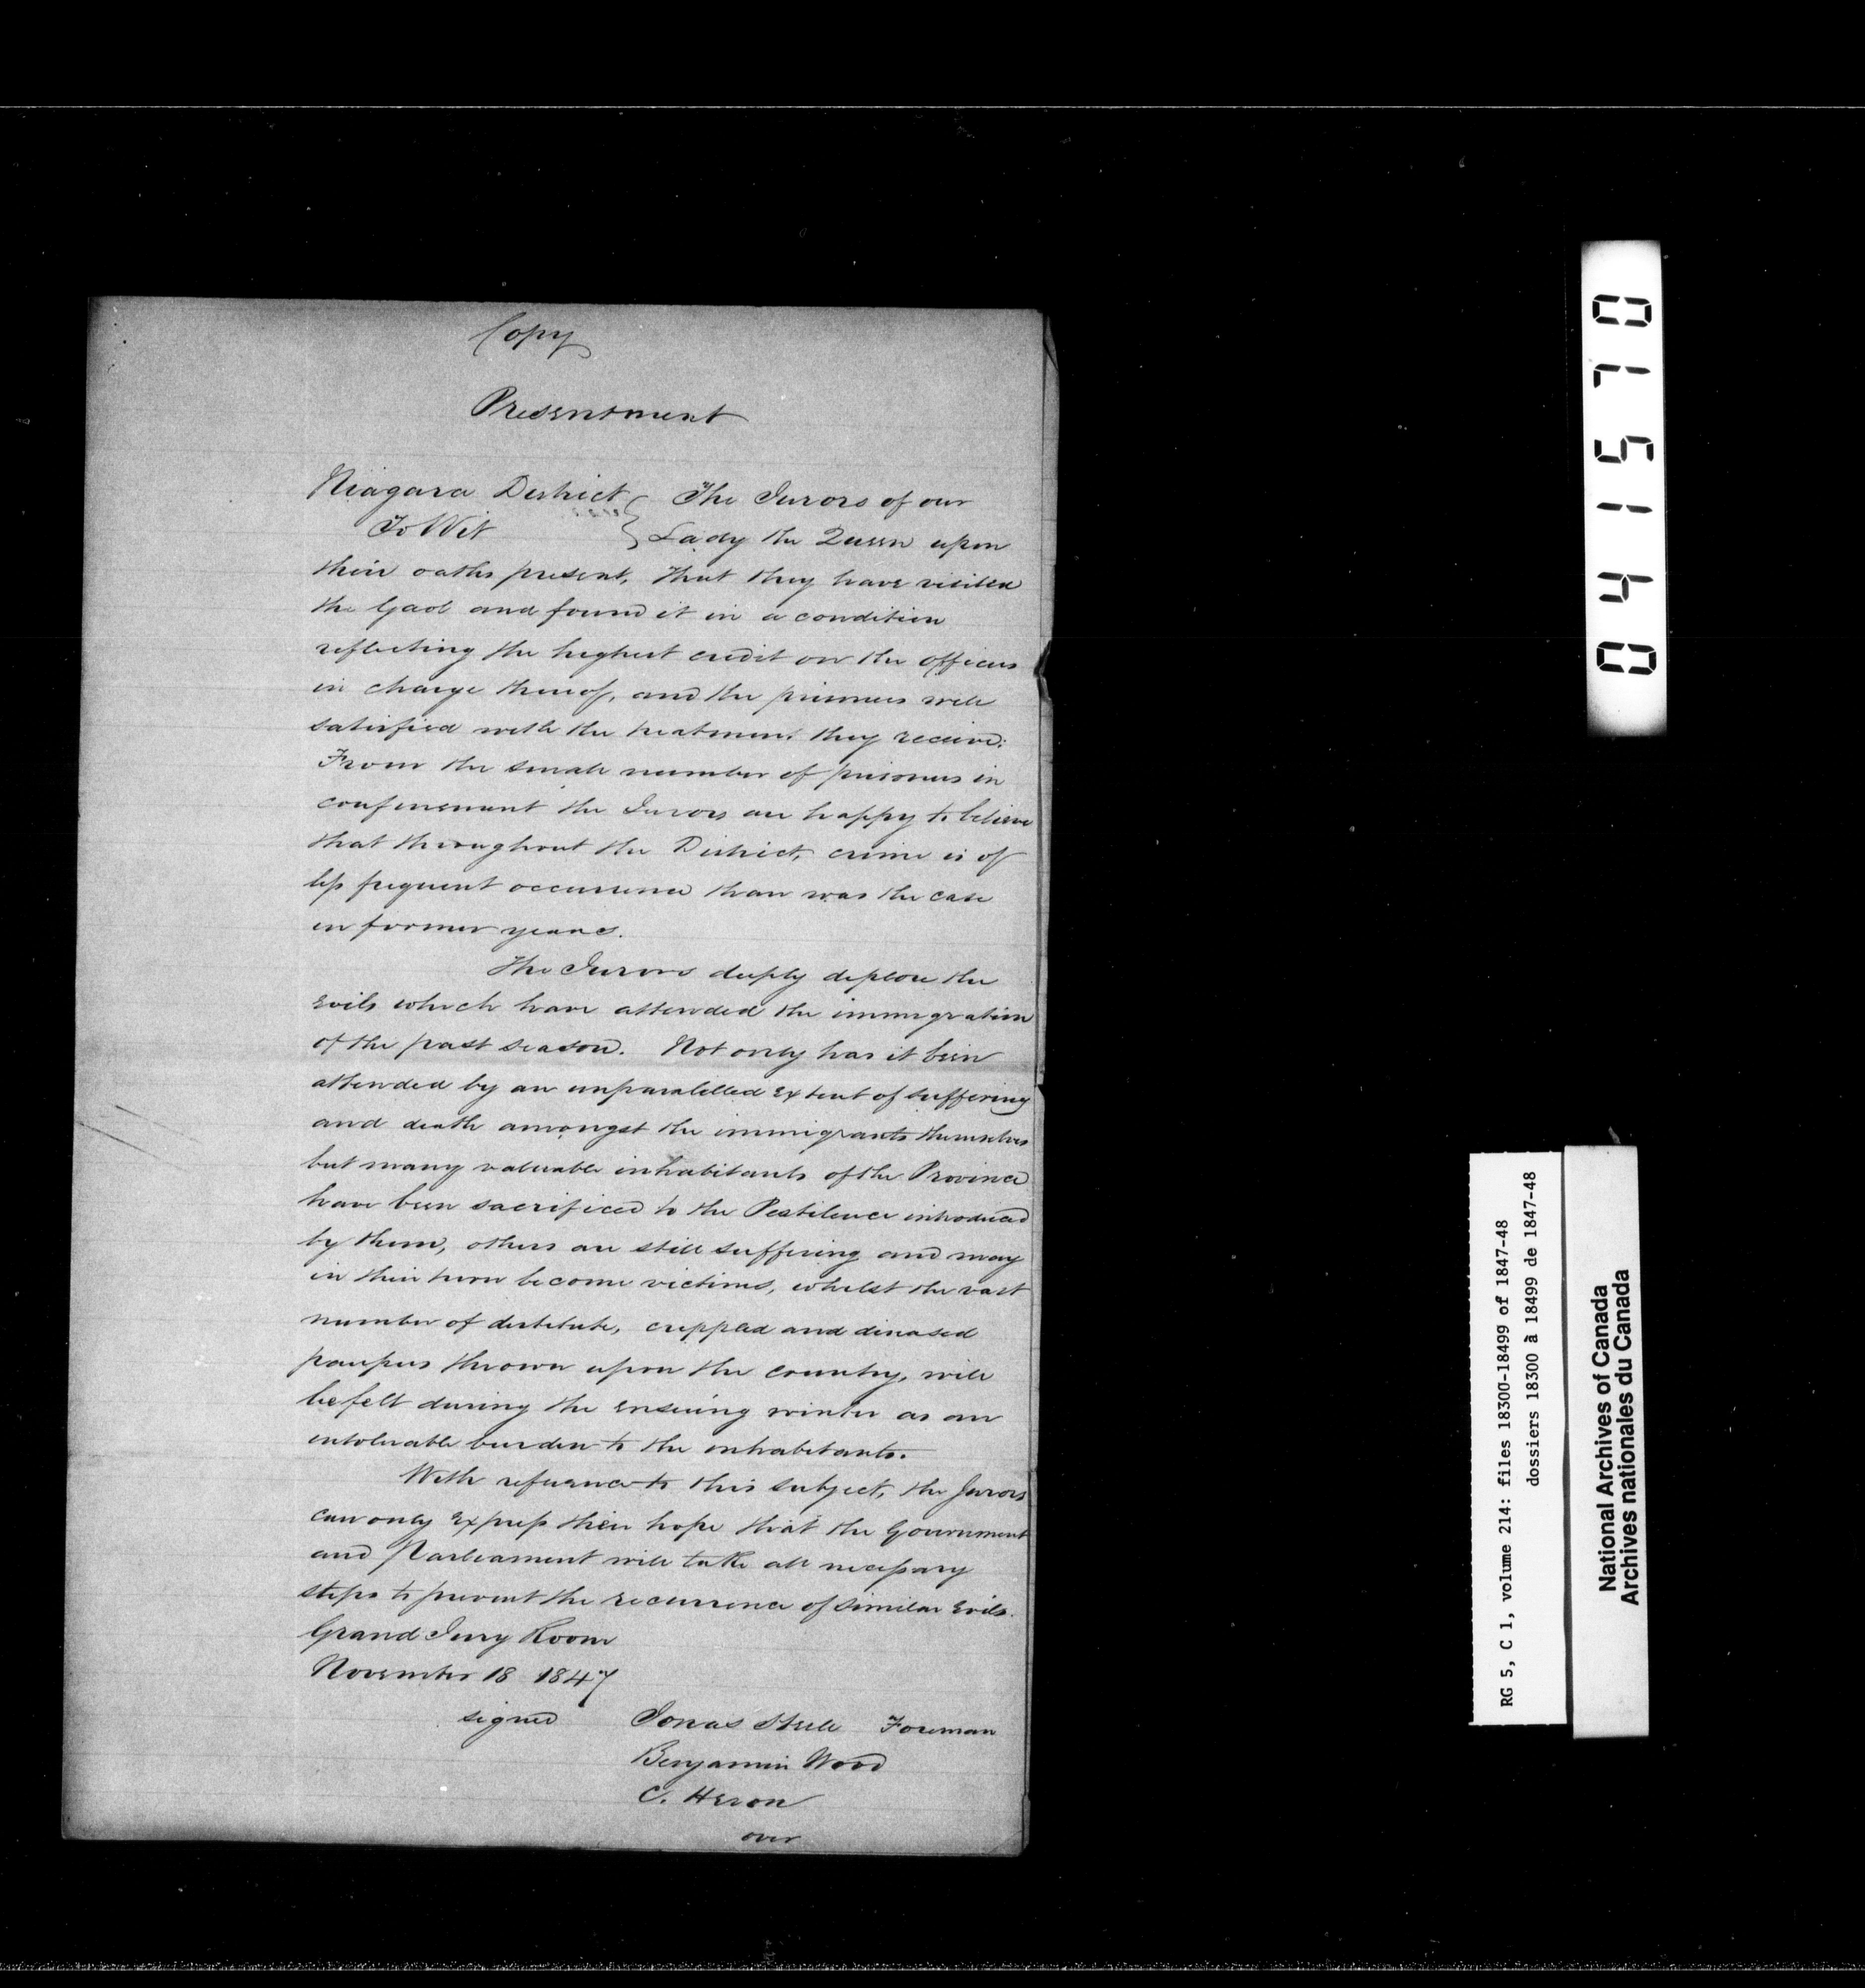 Copy
Presentment
Niagara District The Jurors of our
To Wit Lady the Queen upon
their oaths present, that they have visited
the Gaol and found it in a condition
reflecting the highest credit on the officers
in charge thereof, and the prisoners well
satisfied with the treatment they receive:
From the small number of prisoners in
confinement the Jurors are happy to believe
that throughout the District, crime is of
less frequent occurrence than was the case
in former years.
The Jurors deeply deplore the
evils which have attended the immigration
of the past season. Not only has it been
attended by an unparalelled extent of suffering
and death amongst the immigrants themselves
but many valuable inhabitants of the Province
have been sacrificed to the Pestilence introduced
by them, others are still suffering and may
in their turn become victims, whilst the vast
number of destitute, crippled and diseased
paupers thrown upon the country, will
be felt during the ensuing winter as an
intolerable burden to the inhabitants.
With reference to this subject, the Jurors
can only express their hope that the Government
and Parliament will take all necessary
steps to prevent the recurrence of similar evils.
Grand Jury Room
November 18 1847
signed Jonas Steele Foreman
Benjamin Wood
C. Heron
over
041570
RG 5, C 1, volume 214: files 18300-18499 of 1847-48
dossiers 18300 à 18499 de 1847-48
National Archives of Canada
Archives nationales du Canada